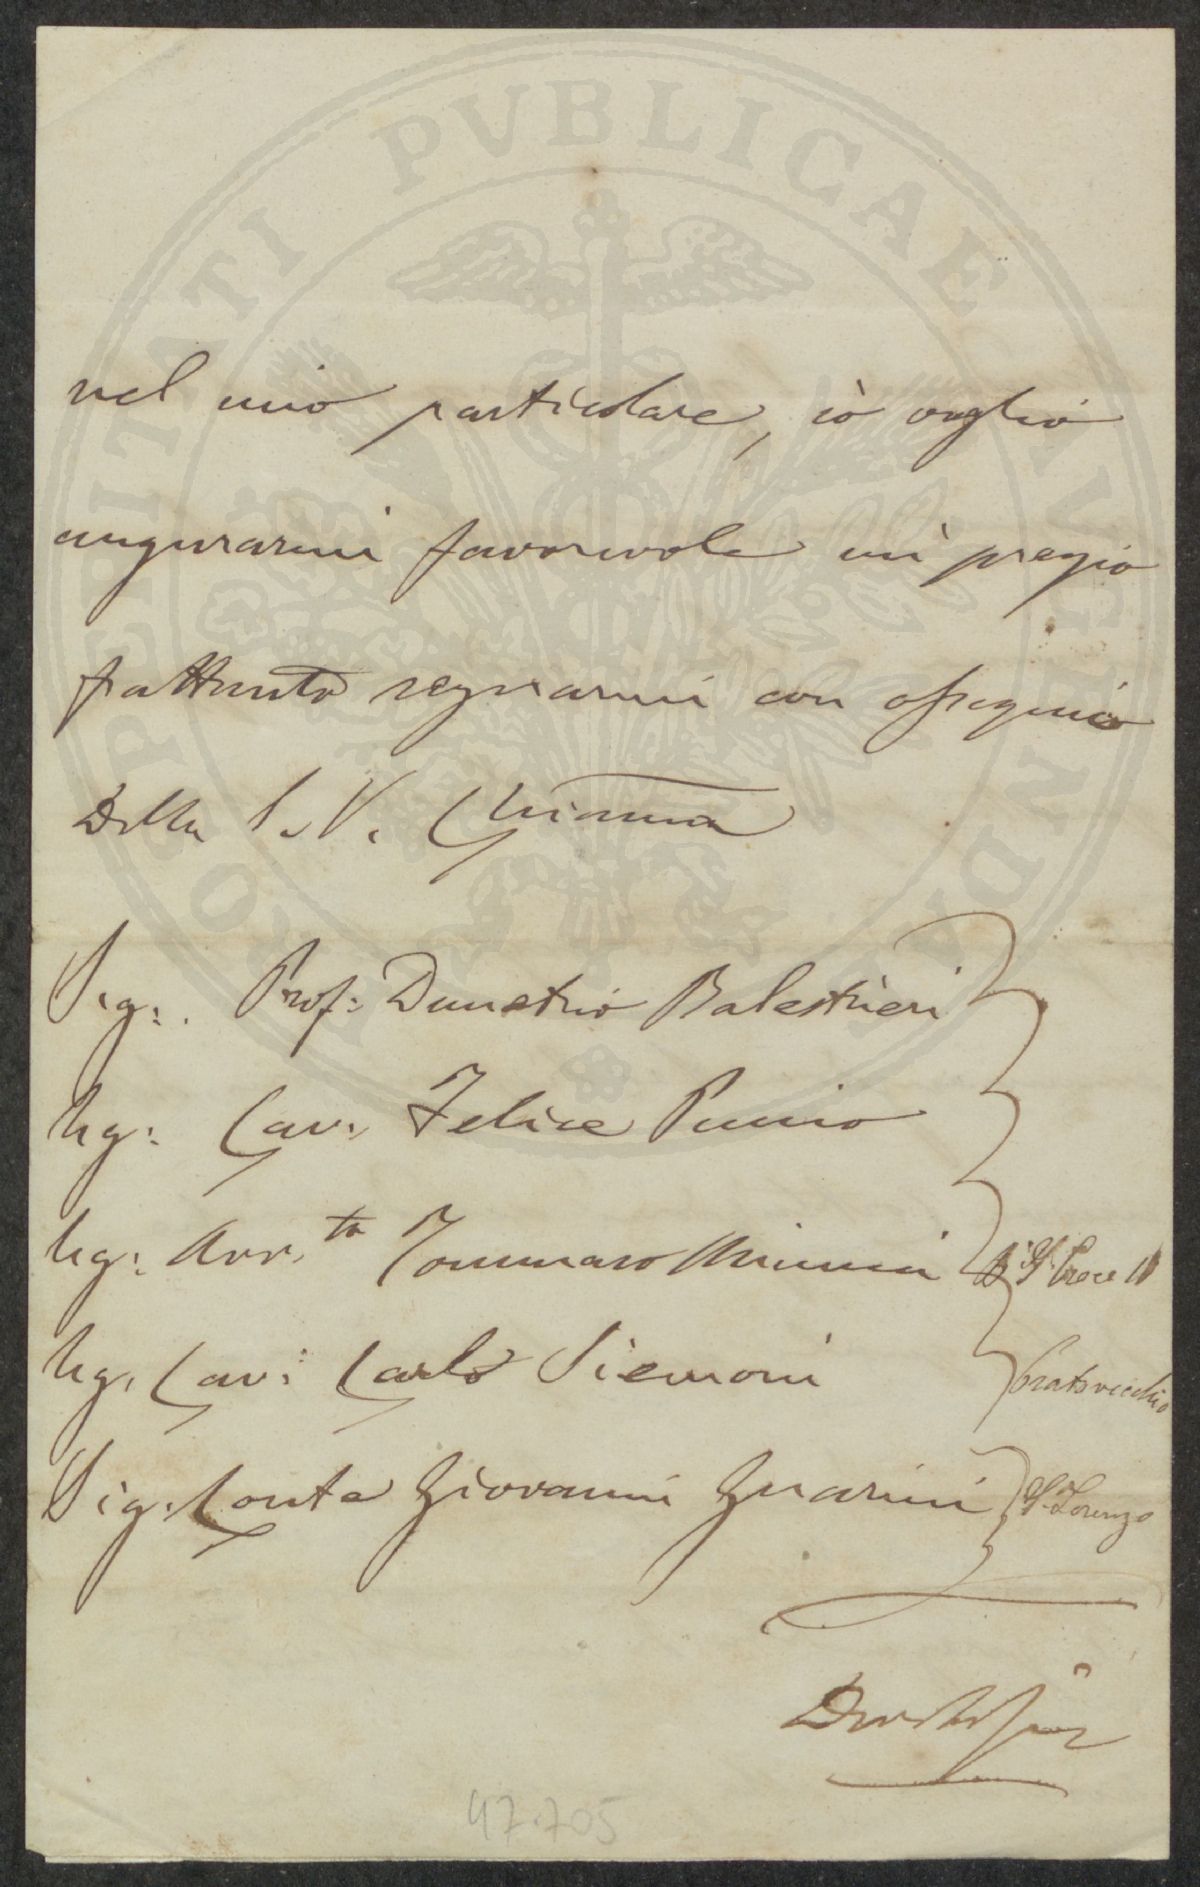 PROSPERITATI PVBLICAE AVGENDAE
nel mio particolare, io voglio
augurarmi favorevole mi pregio
frattanto segnarmi con ossequio
Della S. V. Chiarma
Sig: Prof: Demetrio Balestrieri
Sig: Cav: Felice
Sig: Avv.to Tommaso
S. Croce 11
Sig. Cav: Carlo Siemoni
Pratovecchio
Sig. Conte Giovanni Guarini
S. Lorenzo
47.705